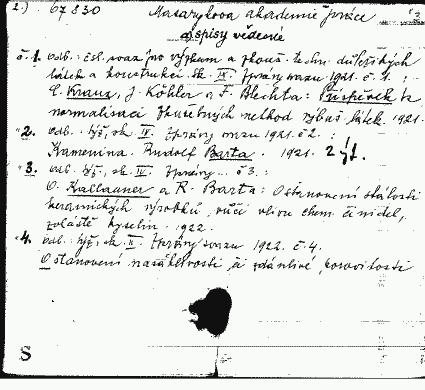 2.) 67830 Masarykova akademie práce
spisy vědecké
č. 1. odb.: čsl. svaz pro výzkum a zkouš. techn. důležitých
látek a konstrukcí sk. IX. Zprávy svazu 1921. č. 1. :
C. Krauz, J. Köhler a F. Blechta: Příspěvek k
normalisaci zkušebných method výbuš. látek. 1921.
"2. odb. týž, sk. IV. Zprávy svazu 1921. č. 2. :
Kamenina. Rudolf Barta. 1921. 2 výt.
"3. odb. týž, sk. IV. Zprávy... č 3. :
O. Kallauner a R. Barta: O stanovení stálosti
keramických výrobků vůči vlivu chem. činidel,
zvláště kyselin. 1922.
"4. odb. týž, sk. II. Zprávy svazu 1922. č. 4.
O stanovení nasáklivosti, či zdánlivé porovitosti
S